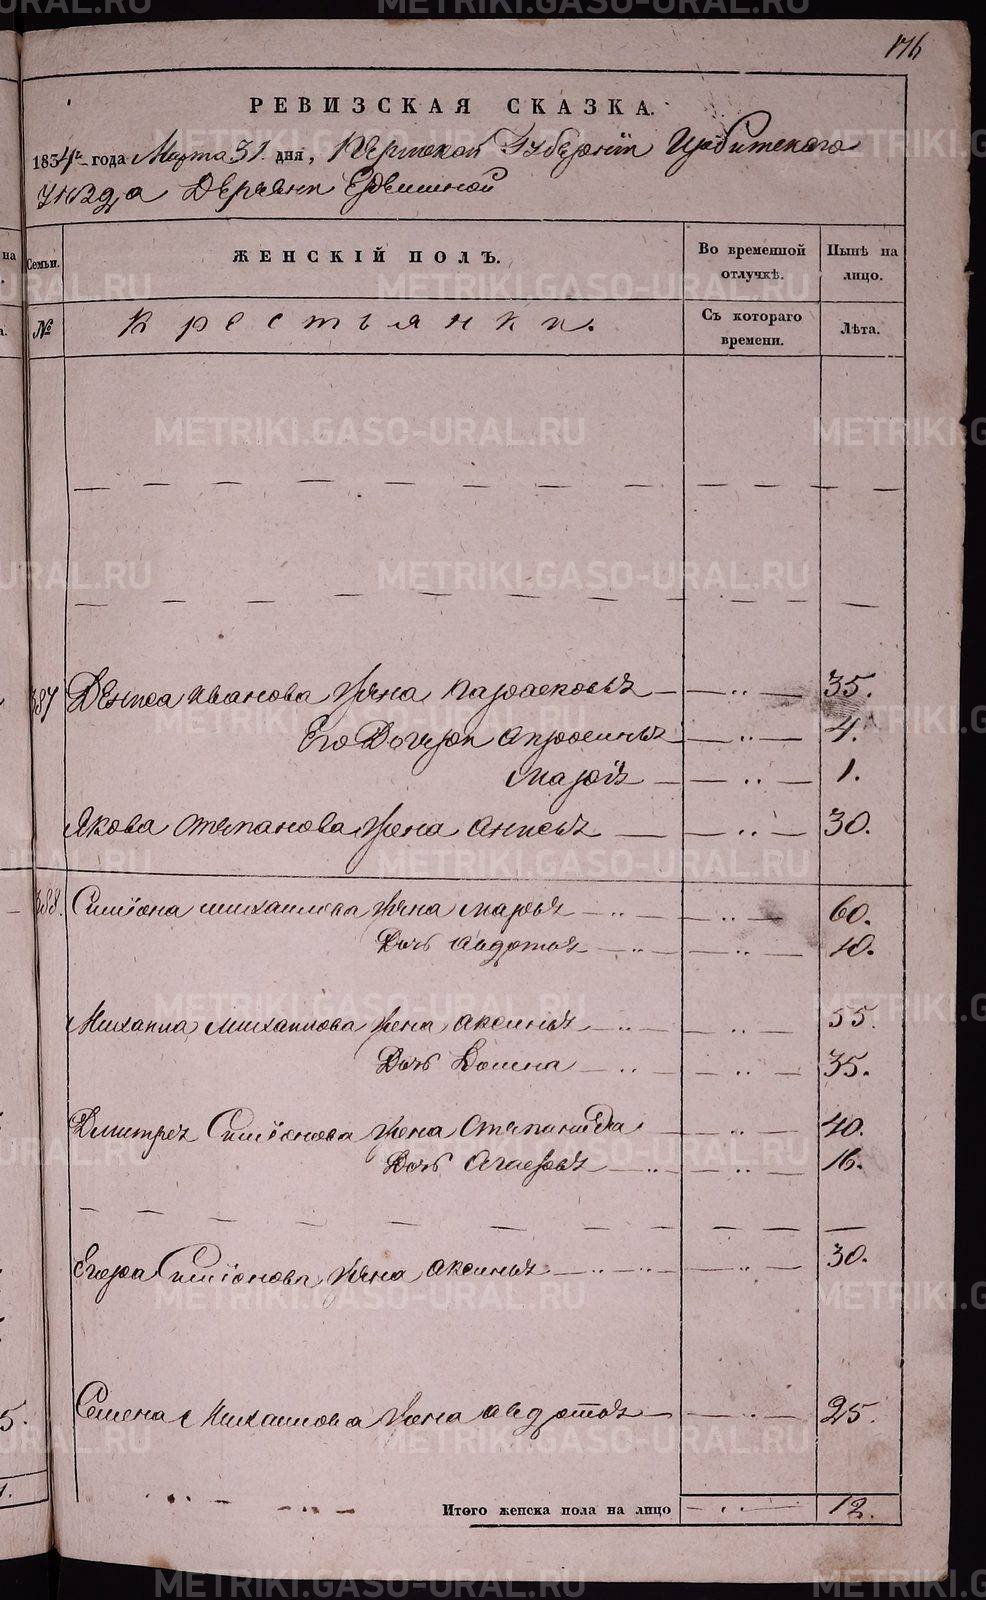 176
РЕВИЗСКАЯ СКАЗКА.
1834го года Марта 31 дня, Пермской Губернiи Ирбитскаго
уѣзда Деревни Едвиной
на
Семьи.
ЖЕНСКІЙ ПОЛЪ.
Во временной отлучкѣ.
Нынѣ на лицо.
№
Крестьянки.
Съ котораго времени.
Лѣта.
387 Дениса Иванова Жена Парасковья 35.
Его Дочери Апросинья 4.
Марья 1.
Якова Степанова Жена Анисья 30.
388. Симiона Михаилова Жена Марья 60.
Дочь Авдотья 10.
Михаила Михаилова Жена Аксинья 55.
Дочь Домна 35.
Дмитрея Симiонова Жена Степанида 40.
Дочь Агаѳья 16.
Егора Симiонова Жена Аксинья 30.
Семена Михаилова Жена Авдотья 25.
5.
Итого женска пола на лицо 12.
1.
METRIKI.GASO-URAL.RU